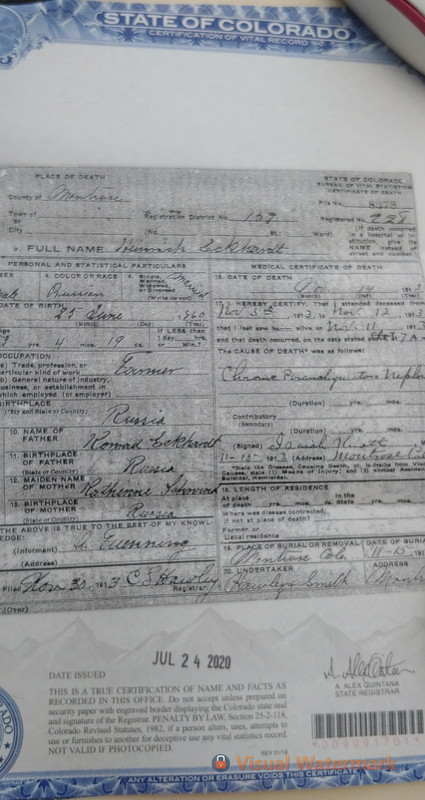 STATE OF COLORADO
CERTIFICATION OF VITAL RECORD
PLACE OF DEATH
STATE OF COLORADO
BUREAU OF VITAL STATISTICS
CERTIFICATE OF DEATH
County of Montrose
File No. 8373
Town of
Registration District No. 159
Registered No. 228
or
City (No. St.: Ward)
[If death occurred
in a hospital or in-
stitution, give its
NAME instead of
street and number.]
2. FULL NAME Heinrich Eckhardt
PERSONAL AND STATISTICAL PARTICULARS
SEX
4. COLOR OR RACE
Russian
DATE OF BIRTH
25 June
(Month) (Day) (Year)
yrs. 4 mos. 19
If LESS than
1 day
or Min.?
OCCUPATION
Trade, profession, or
particular kind of work
Farmer
(b) General nature of industry,
business, or establishment in
which employed (or employer)
BIRTHPLACE
(City and State or Country)
Russia
10. NAME OF
FATHER
Konrad Eckhardt
11. BIRTHPLACE
OF FATHER
(State or Country)
Russia
12. MAIDEN NAME
OF MOTHER
Katherine
13. BIRTHPLACE
OF MOTHER
(State or Country)
Russia
THE ABOVE IS TRUE TO THE BEST OF MY KNOWL-
EDGE:
(Informant)
(Address)
Filed Nov 30, 1913 C S Hawley
Registrar.
(Over)
MEDICAL CERTIFICATE OF DEATH
16. DATE OF DEATH
Nov 14 1913
(Month) (Day)
17. I HEREBY CERTIFY, That I attended deceased from
Nov 5th, 1913, to Nov 12 1913
that I last saw h alive on Nov 11 1913
and that death occurred, on the date stated
The CAUSE OF DEATH* was as follows:
Chronic
(Duration) yrs.
Contributory
(Secondary)
(Duration) yrs. mos.
(Signed)
11-15-1913 (Address) Montrose
*State the Disease Causing Death, or, in deaths from Violent
Causes, state (1) Means of Injury; and (2) whether Accidental,
Suicidal, Homicidal.
18. LENGTH OF RESIDENCE
At place
of death yrs. mos. ds.
In the
State yrs. mos.
Where was disease contracted,
if not at place of death?
Former or
Usual residence
19. PLACE OF BURIAL OR REMOVAL
DATE OF BURIAL
Montrose Colo.
11-15, 191
20. UNDERTAKER
ADDRESS
Hawley & Smith
JUL 24 2020
DATE ISSUED
THIS IS A TRUE CERTIFICATION OF NAME AND FACTS AS
RECORDED IN THIS OFFICE. Do not accept unless prepared on
security paper with engraved border displaying the Colorado state seal
and signature of the Registrar. PENALTY BY LAW, Section 25-2-118,
Colorado Revised Statutes, 1982, if a person alters, uses, attempts to
use or furnishes to another for deceptive use any vital statistics record.
NOT VALID IF PHOTOCOPIED.
REV 01/19
A. ALEX QUINTANA
STATE REGISTRAR
Visual Watermark
ANY ALTERATION OR ERASURE VOIDS THIS CERTIFICATE